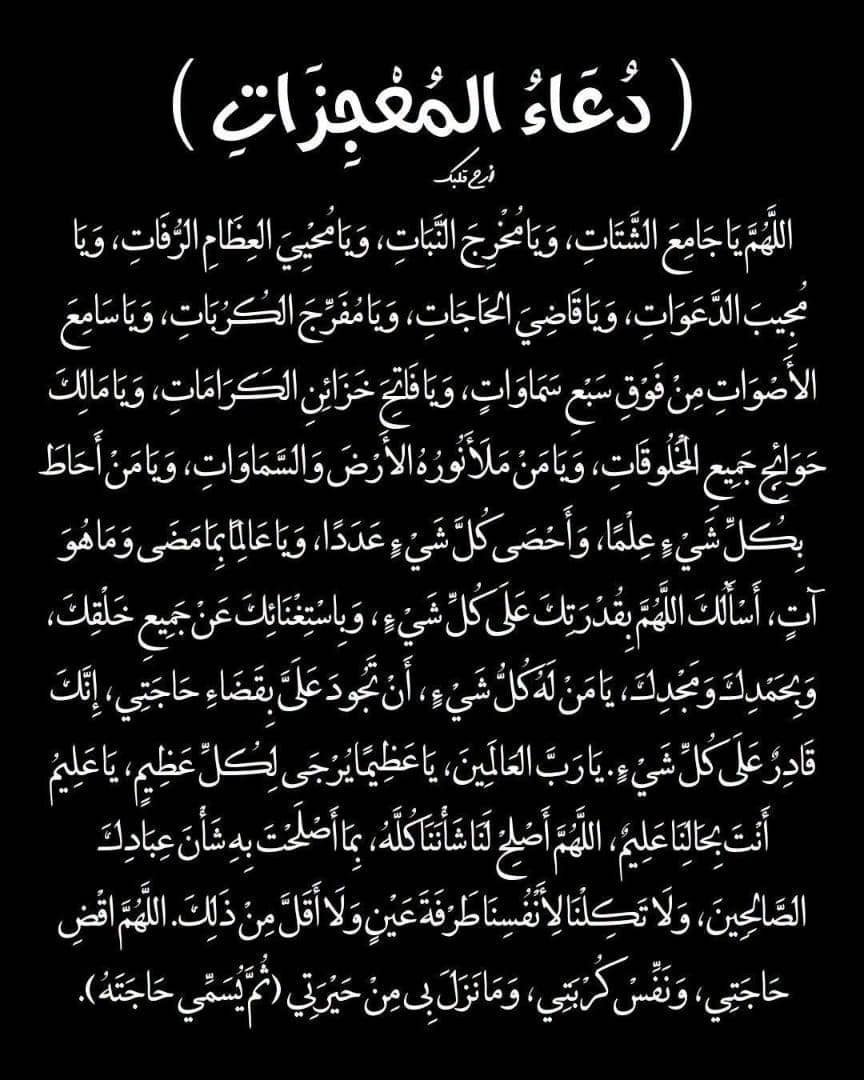 ( دُعَاءُ المُعْجِزَاتِ )
اللَّهُمَّ يَا جَامِعَ الشَّتَاتِ، وَيَا مُخْرِجَ النَّبَاتِ، وَيَا مُحْيِيَ العِظَامِ الرُّفَاتِ، وَيَا
مُجِيبَ الدَّعَوَاتِ، وَيَا قَاضِيَ الحَاجَاتِ، وَيَا مُفَرِّجَ الكُرُبَاتِ، وَيَا سَامِعَ
الأَصْوَاتِ مِنْ فَوْقِ سَبْعِ سَمَاوَاتٍ، وَيَا فَاتِحَ خَزَائِنِ الكَرَامَاتِ، وَيَا مَالِكَ
حَوَائِجِ جَمِيعِ المَخْلُوقَاتِ، وَيَا مَنْ مَلَأَ نُورُهُ الأَرْضَ وَالسَّمَاوَاتِ، وَيَا مَنْ أَحَاطَ
بِكُلِّ شَيْءٍ عِلْمًا، وَأَحْصَى كُلَّ شَيْءٍ عَدَدًا، وَيَا عَالِمًا بِمَا مَضَى وَمَا هُوَ
آتٍ، أَسْأَلُكَ اللَّهُمَّ بِقُدْرَتِكَ عَلَى كُلِّ شَيْءٍ، وَبِاسْتِغْنَائِكَ عَنْ جَمِيعِ خَلْقِكَ،
وَبِحَمْدِكَ وَمَجْدِكَ، يَا مَنْ لَهُ كُلُّ شَيْءٍ، أَنْ تَجُودَ عَلَيَّ بِقَضَاءِ حَاجَتِي، إِنَّكَ
قَادِرٌ عَلَى كُلِّ شَيْءٍ. يَا رَبَّ العَالَمِينَ، يَا عَظِيمًا يُرْجَى لِكُلِّ عَظِيمٍ، يَا عَلِيمُ
أَنْتَ بِحَالِنَا عَلِيمٌ، اللَّهُمَّ أَصْلِحْ لَنَا شَأْنَنَا كُلَّهُ، بِمَا أَصْلَحْتَ بِهِ شَأْنَ عِبَادِكَ
الصَّالِحِينَ، وَلَا تَكِلْنَا لِأَنْفُسِنَا طَرْفَةَ عَيْنٍ وَلَا أَقَلَّ مِنْ ذَلِكَ. اللَّهُمَّ اقْضِ
حَاجَتِي، وَنَفِّسْ كُرْبَتِي، وَمَا نَزَلَ بِي مِنْ حَيْرَتِي (ثُمَّ يُسَمِّي حَاجَتَهُ).